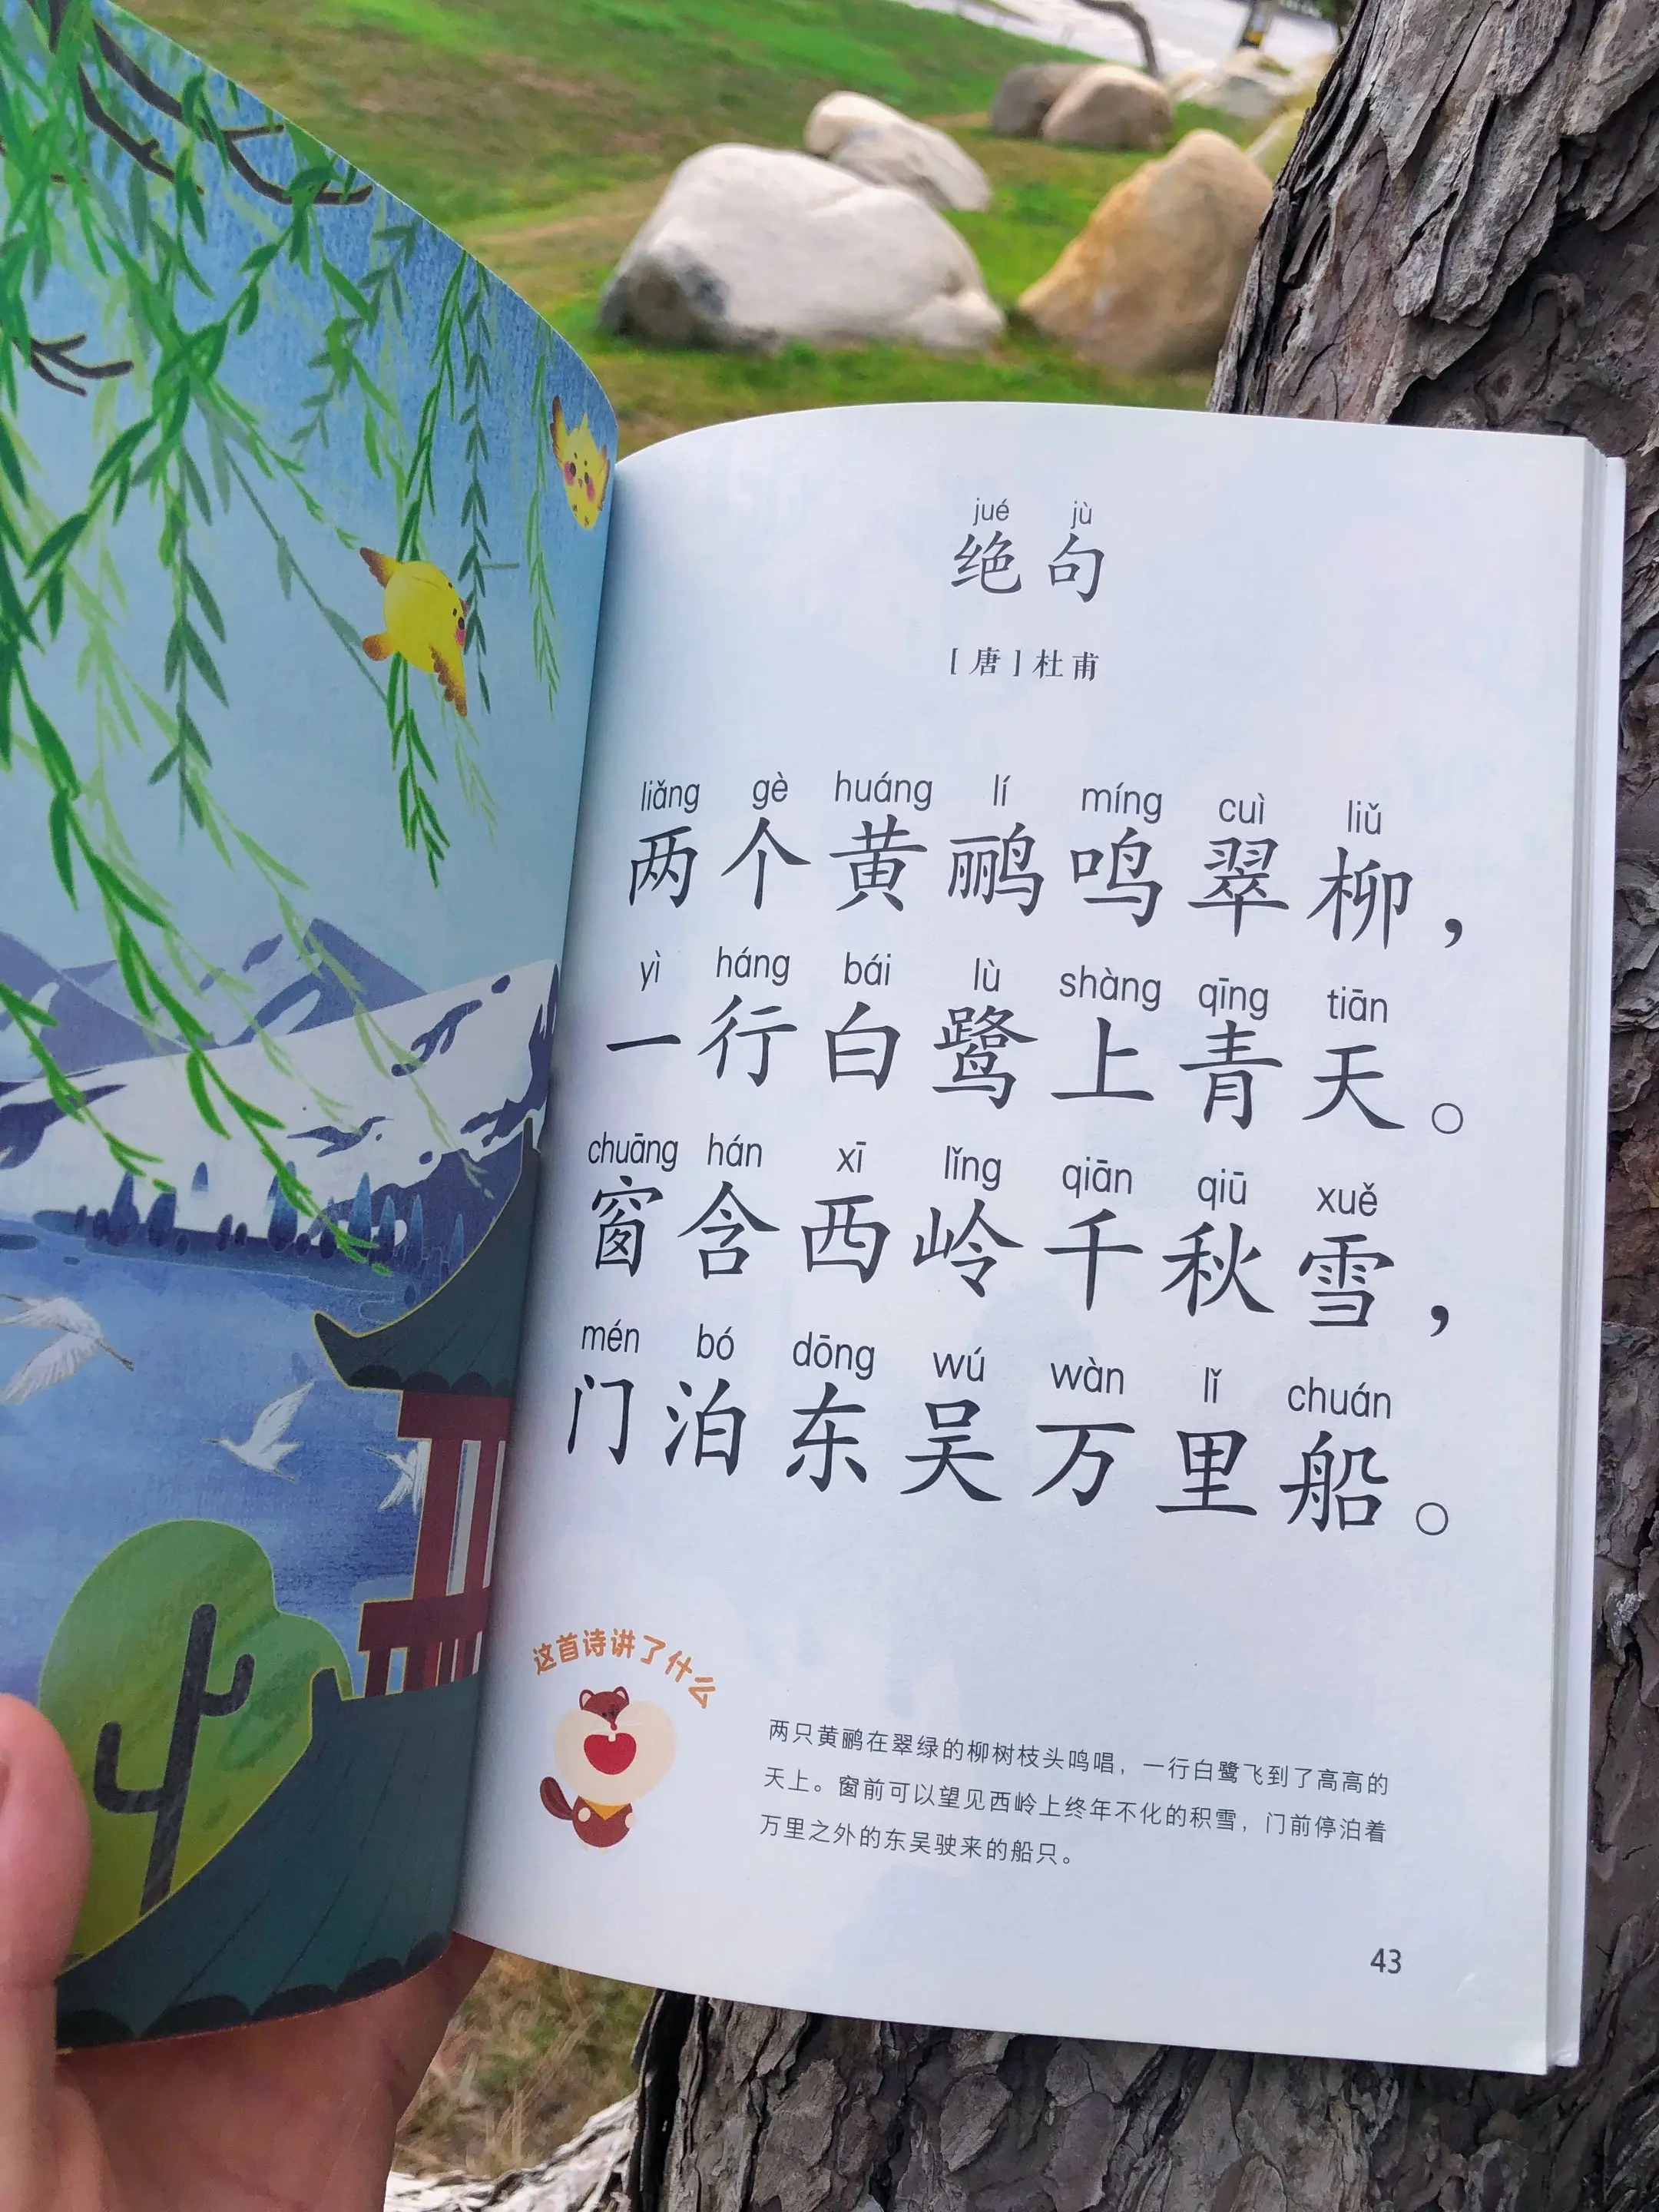 jué jù
绝句
[唐]杜甫
liǎng gè huáng lí míng cuì liǔ
两个黄鹂鸣翠柳，
yì háng bái lù shàng qīng tiān
一行白鹭上青天。
chuāng hán xī lǐng qiān qiū xuě
窗含西岭千秋雪，
mén bó dōng wú wàn lǐ chuán
门泊东吴万里船。
这首诗讲了什么
两只黄鹂在翠绿的柳树枝头鸣唱，一行白鹭飞到了高高的
天上。窗前可以望见西岭上终年不化的积雪，门前停泊着
万里之外的东吴驶来的船只。
43